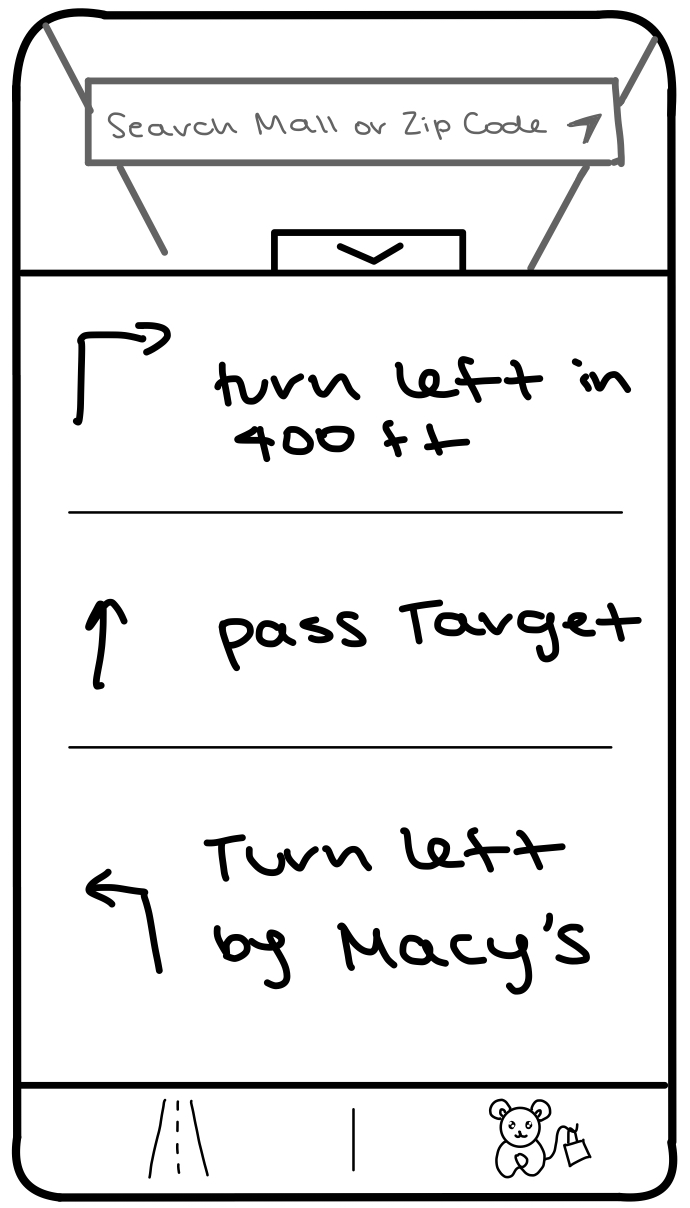 Search Mall or Zip Code
turn left in
400 ft
pass Target
Turn left
by Macy's